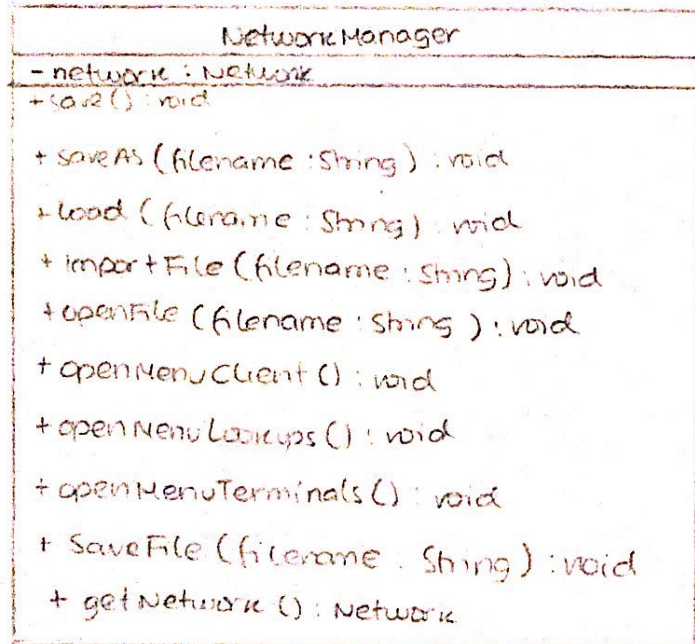 NetworkManager
- network : Network
+ save() : void
+ saveAs (filename : String) : void
+ load (filename : String) void
+ importFile (filename : String) : void
+ openFile (filename : String ) : void
+ openMenuClient () : void
+ openMenuLookups () : void
+ openMenuTerminals () : void
+ SaveFile (filename : String) : void
+ getNetwork () : Network